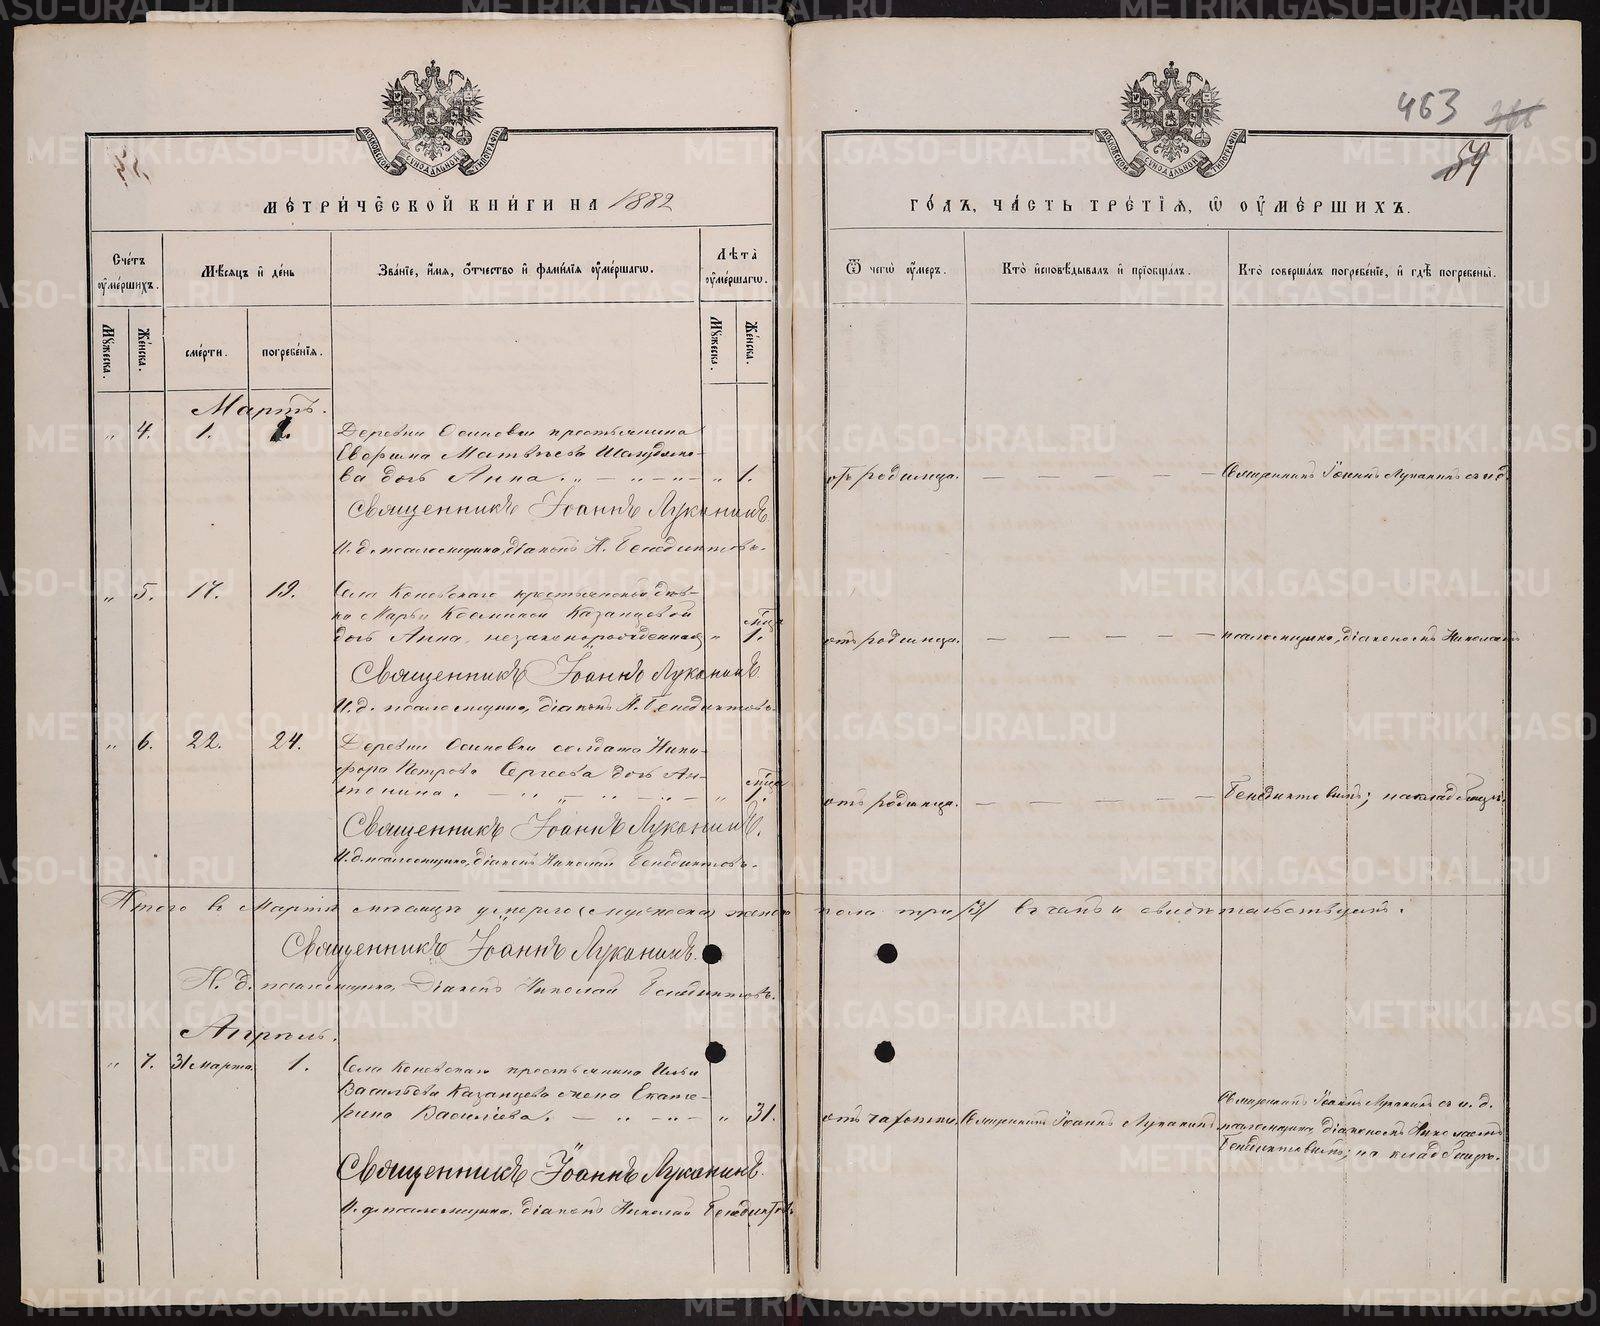 463
59
МОСКОВСКОЙ СѴНОДАЛЬНОЙ ТИПОГРАФІИ
МОСКОВСКОЙ СѴНОДАЛЬНОЙ ТИПОГРАФІИ
МЕТРИЧЕСКОЙ КНИГИ НА 1882
ГОДЪ, ЧАСТЬ ТРЕТІЯ, Ѡ ОУМЕРШИХЪ.
Счетъ оумершихъ.
Мѣсяцъ и день
Званіе, имя, отчество и фамилія оумершагѡ.
Лѣта оумершагѡ.
Ѿ чегѡ оумеръ.
Кто исповѣдывалъ и пріобщалъ.
Кто совершалъ погребеніе, и гдѣ погребены.
Мужеска.
Женска.
смерти.
погребенія.
Мужеска.
Женска.
Мартъ.
„ 4. 1. 1. Деревни Осиновки крестьянина
Матвѣева
ва дочь Анна. „ 1. отъ родимца. Священникъ Іоаннъ Луканинъ съ и.д.
Священникъ Іоаннъ Луканинъ.
И. д. псаломщика, діаконъ Н. Бенедиктовъ.
„ 5. 17. 19. Села Коневскаго крестьянской дѣв-
ки Марьи Козминой Казанцевой
дочь Анна, незаконнорожденная „ 1. отъ родимца. псаломщика, діакономъ Николаемъ
Священникъ Іоаннъ Луканинъ.
И. д. псаломщика, діаконъ Н. Бенедиктовъ.
„ 6. 22. 24. Деревни Осиновки солдата Ники-
фора Петрова Сергеева дочь Ан-
тонина. „ отъ родимца. Бенедиктовымъ; на кладбищѣ.
Священникъ Іоаннъ Луканинъ.
И. д. псаломщика, діаконъ Николай Бенедиктовъ.
Итого в Мартѣ мѣсяцѣ умерло (мужеска) женска пола три /3/ в чемъ и свидѣтельствуемъ.
Священникъ Іоаннъ Луканинъ.
И. д. псаломщика, Діаконъ Николай Бенедиктовъ.
Апрѣль.
„ 7. 31 марта. 1. Села Коневскаго крестьянина Ильи
Васильева Казанцева жена Екате-
рина Василіева. „ 31. отъ чахотки. Священникъ Іоаннъ Луканинъ
Священникъ Іоаннъ Луканинъ съ и. д.
псаломщика, діакономъ Николаемъ
Бенедиктовымъ; на кладбищѣ.
Священникъ Іоаннъ Луканинъ.
И. д. псаломщика, діаконъ Николай Бенедиктовъ
METRIKI.GASO-URAL.RU